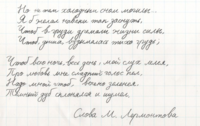 Но не тем холодным сном могилы...
Я б желал навеки так заснуть,
Чтоб в груди дремали жизни силы,
Чтоб дыша, вздымалась тихо грудь;
Чтоб всю ночь, весь день мой слух лелея,
Про любовь мне сладкий голос пел,
Надо мной чтоб, вечно зеленея,
Тёмный дуб склонялся и шумел.
Слова М. Лермонтова